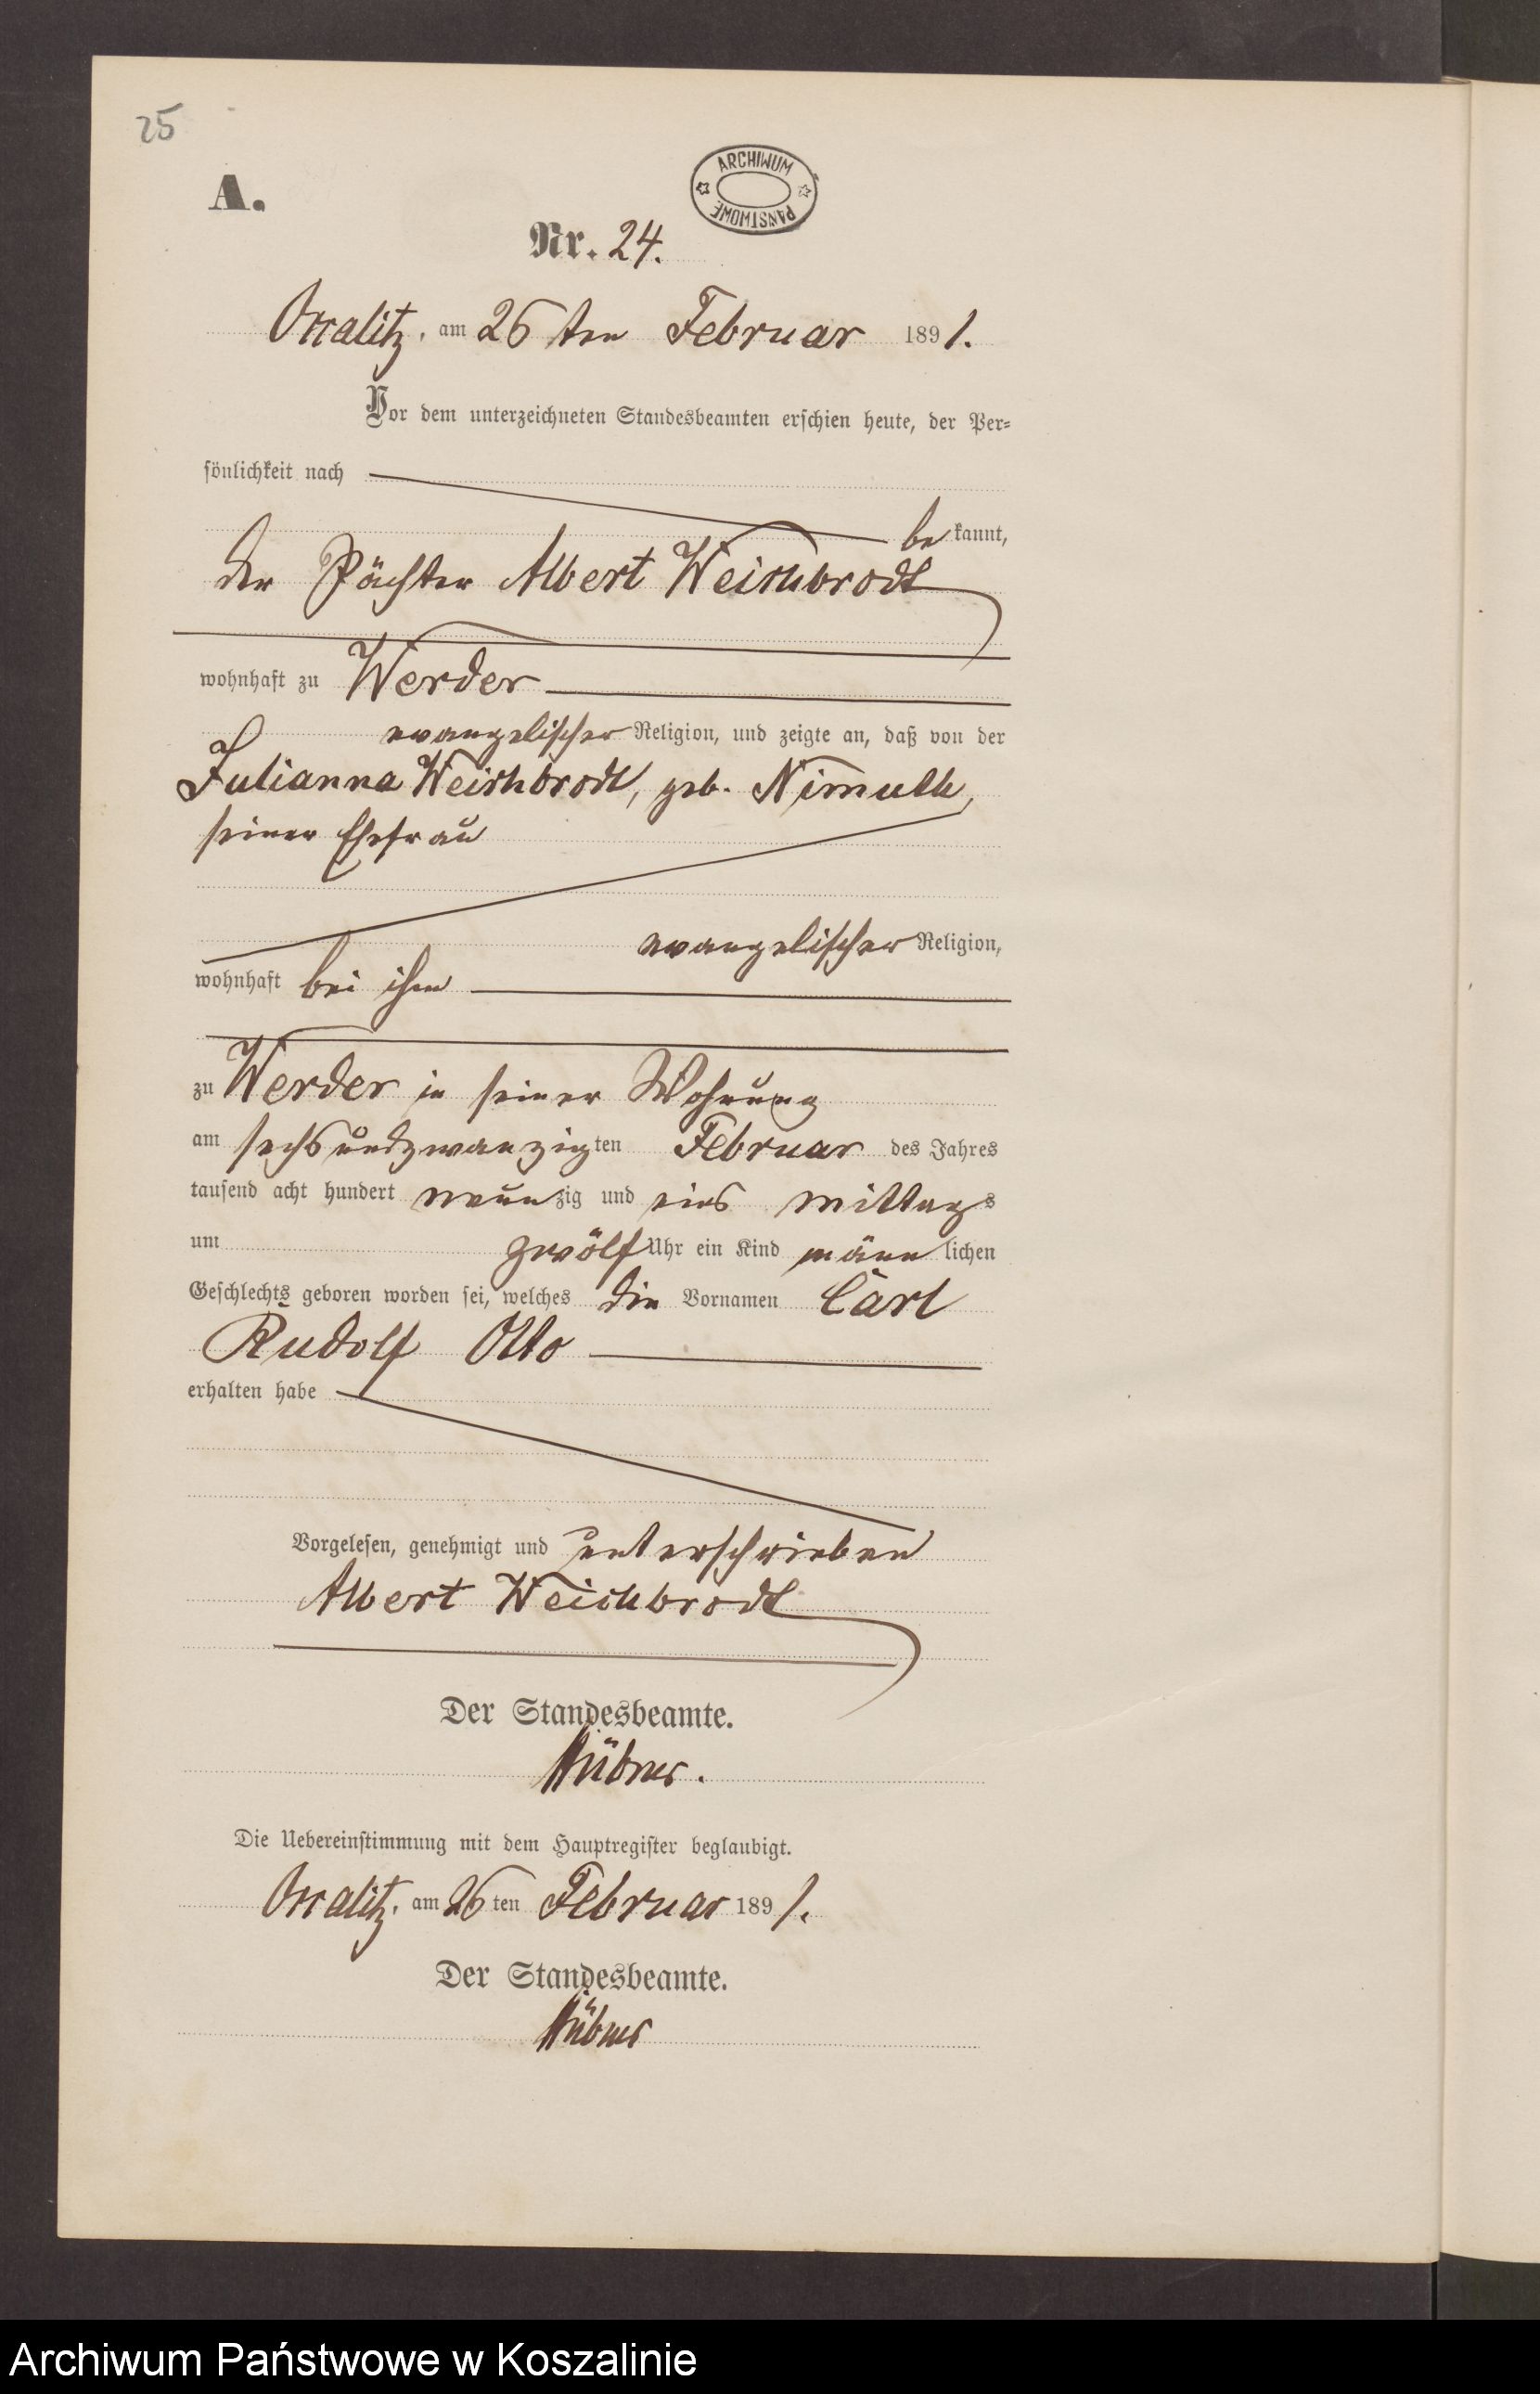 25
ARCHIWUM
PAŃSTWOWE
A.
Nr. 24.
am 26 ten Februar 1891.
Vor dem unterzeichneten Standesbeamten erschien heute, der Per=
sönlichkeit nach
be kannt,
der Pächter Albert Weichbrodt
wohnhaft zu Werder
evangelischer Religion, und zeigte an, daß von der
Julianna Weichbrodt, geb.
seiner Ehefrau
evangelischer Religion,
wohnhaft bei ihm
zu Werder in seiner Wohnung
am sechsundzwanzigten Februar des Jahres
tausend acht hundert neunzig und eins mittags
um zwölf Uhr ein Kind männlichen
Geschlechts geboren worden sei, welches die Vornamen Carl
Rudolf Otto
erhalten habe
Vorgelesen, genehmigt und unterschrieben
Albert Weichbrodt
Der Standesbeamte.
Hübner.
Die Uebereinstimmung mit dem Hauptregister beglaubigt.
am 26 ten Februar 1891.
Der Standesbeamte.
Hübner
Archiwum Państwowe w Koszalinie